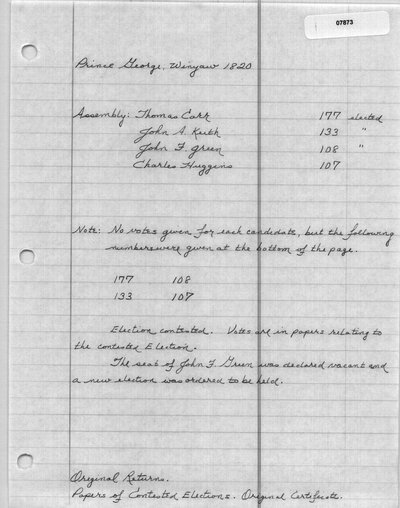 07873
Prince George, Winyaw 1820
Assembly: Thomas Carr 177 elected
John A. Keith 133 "
John F. Green 108 "
Charles Huggins 107
Note: No votes given for each candidate, but the following
numbers were given at the bottom of the page.
177 108
133 107
Election contested. Votes are in papers relating to
the contested Election.
The seat of John F. Green was declared vacant and
a new election was ordered to be held.
Original Returns.
Papers of Contested Elections. Original Certificate.